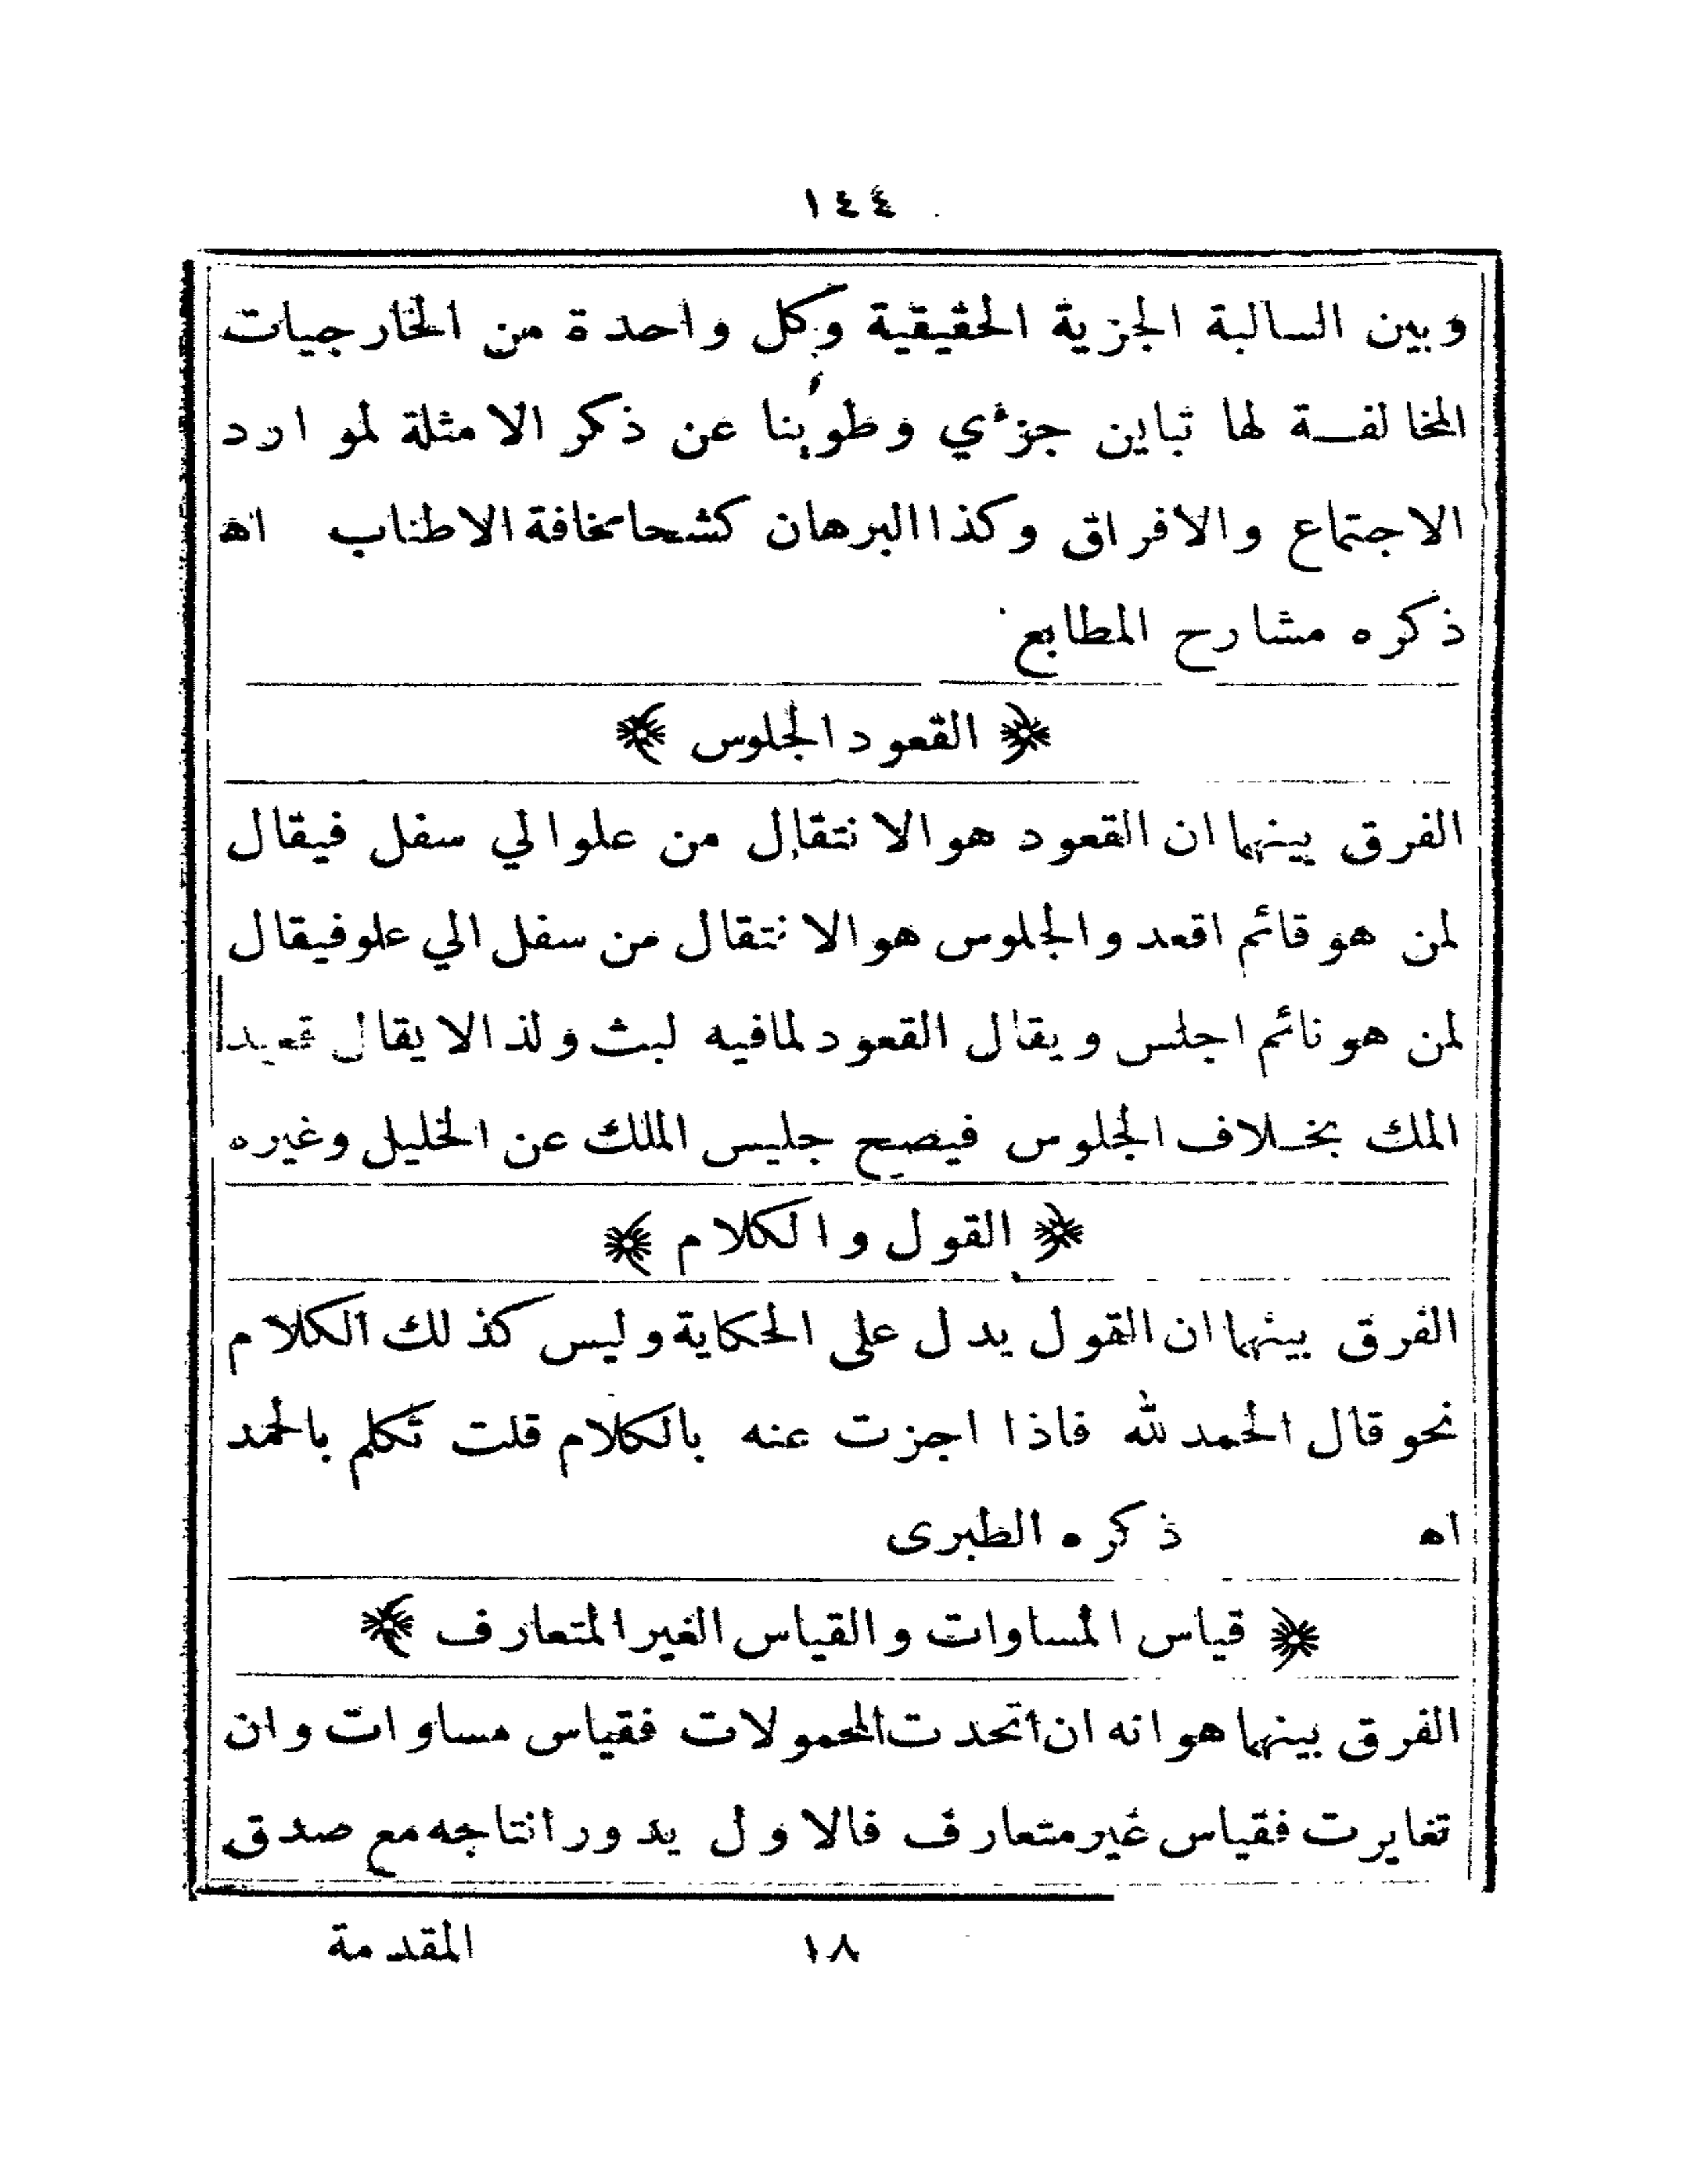 ١٤٤
وبين السالبة الجزية الحقيقية وكل واحدة من الخارجيات
المخالفة لها تباين جزءي وطوينا عن ذكر الامثلة لموارد
الاجتماع والافراق وكذا البرهان كشحا مخافة الاطناب اه
ذكره مشارح المطابع
﴿ القعود الجلوس ﴾
الفرق بينهما ان القعود هو الانتقال من علو الي سفل فيقال
لمن هو قائم اقعد والجلوس هو الانتقال من سفل الي علو فيقال
لمن هو نائم اجلس ويقال القعود لما فيه لبث ولذا لا يقال قعيد
الملك بخلاف الجلوس فيصح جليس الملك عن الخليل وغيره
﴿ القول والكلام ﴾
الفرق بينهما ان القول يدل على الحكاية وليس كذلك الكلام
نحو قال الحمد لله فاذا اجزت عنه بالكلام قلت تكلم بالحمد
اه ذكره الطبرى
﴿ قياس المساوات والقياس الغير المتعارف ﴾
الفرق بينهما هو انه ان اتحدت المحمولات فقياس مساوات وان
تغايرت فقياس غير متعارف فالاول يدور انتاجه مع صدق
١٨ المقدمة